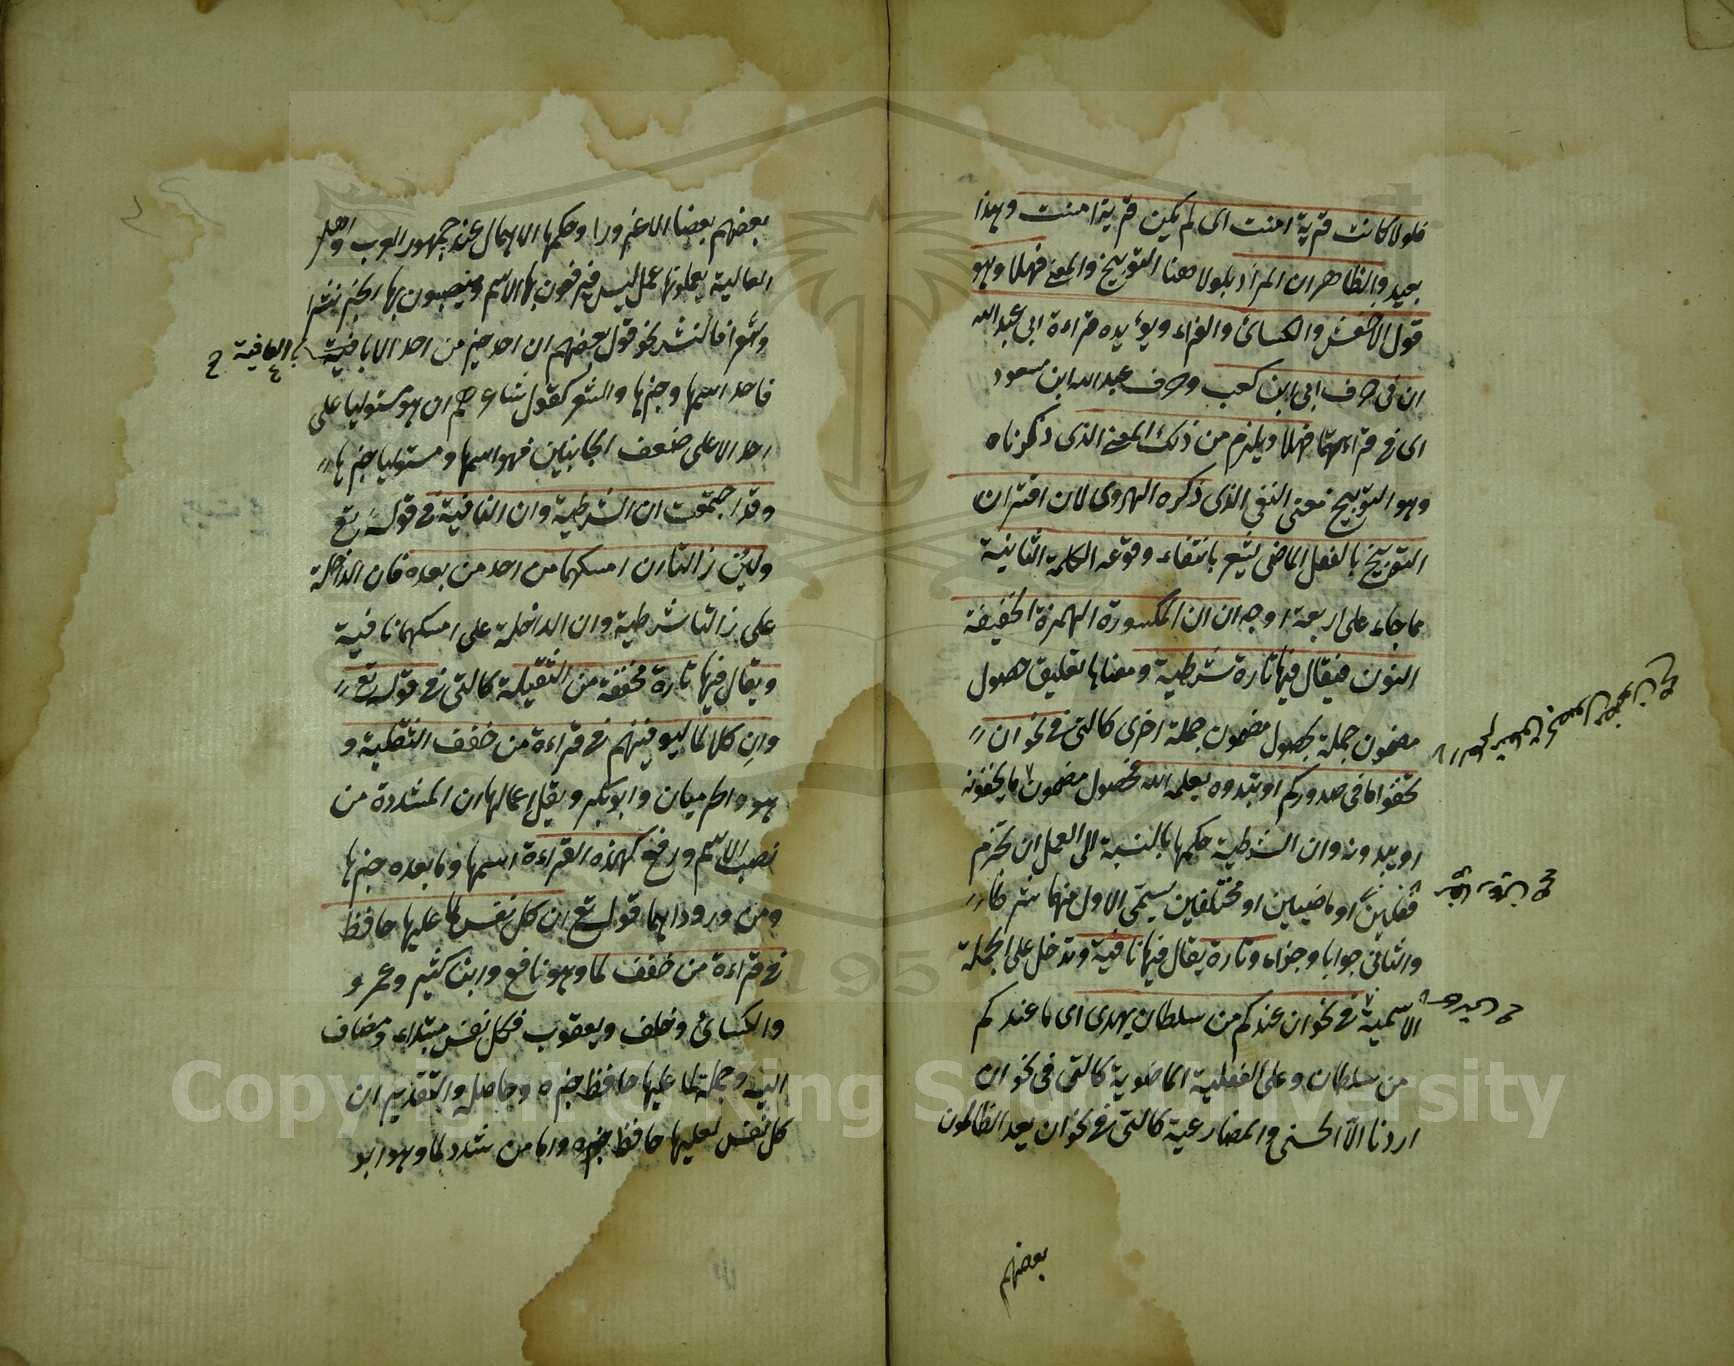 فلولا كانت قرية امنت اى لم يكن قرية امنت وهذا
بعيد والظاهر ان المراد بلولا هنا التوبيخ والمعنى فهلا وهو
قول الاخفش والكسائى والفراء ويؤيده قراءة ابى عبد الله
ان فى حرف ابى ابن كعب وحرف عبد الله ابن مسعود
اى فى قراءتهما فهلا ويلزم من ذلك المعنى الذى ذكرناه
وهو التوبيخ معنى النفى الذى ذكره الهروى لان اقتران
التوبيخ بالفعل الماضى يشعر بانتفاء وقوعه الكلمة الثانية
مما جاء على اربعة اوجه ان المكسورة الهمزة الخفيفة
النون فيقال فيها تارة شرطية ومعناها تعليق حصول
مضمون جملة بحصول مضمون جملة اخرى كالتى فى نحو ان
تخفوا ما فى صدوركم او تبدوه يعلمه الله فحصول مضمون ما يخفونه
او يبدونه وان الشرطية حكمها بالنسبة الى العمل ان تجزم
فعلين او ماضيين او مختلفين يسمى الاول منهما شرطا
والثانى جوابا وجزاء وتارة يقال فيها نافية وتدخل على الجملة
الاسمية فى نحو ان عندكم من سلطان بهذا اى ما عندكم
من سلطان وعلى الفعلية الماضوية كالتى فى نحو ان
اردنا الا الحسنى والمضارعية كالتى فى نحو ان يعد الظالمون
بعضهم
بعضهم بعضا الا غرورا وحكمها الاهمال عند جمهور العرب واهل
العالية يعملونها عمل ليس فيرفعون بها الاسم وينصبون بها الخبر نثرا
وشعرا فالنثر نحو قول بعضهم ان احد خير من احد الا با فية
بالعافية ح
فاحد اسمها وخبرها والشعر كقول شاعرهم ان هو مستوليا على
احد الا على ضعف المجانين فهو اسمها ومستوليا خبرها
وقد اجتمعت ان الشرطية وان النافية فى قوله تع
ولئن زالتا ان امسكهما من احد من بعده فان الداخلة
على زالتا شرطية وان الداخلة على امسكهما نافية
ويقال فيها تارة مخففة من الثقيلة كالتى فى قوله تع
وان كلا لما ليوفينهم فى قراءة من خفف الثقلية و
هو والحرميان وابوبكر ويقل اعمالها ان المشددة من
نصب الاسم ورفع كهذه القراءة اسمها وما بعده خبرها
ومن ورود اهمالها قوله تع ان كل نفس لما عليها حافظ
فى قراءة من خفف لما وهو نافع وابن كثير وعمرو
والكسائى وخلف ويعقوب فكل نفس مبتداء ومضاف
اليه وجملة لما عليها حافظ خبره وحاصله والتقدير ان
كل نفس لعليها حافظ خبره واما من شدد لما وهو ابو
Copyright © King Saud University
1957